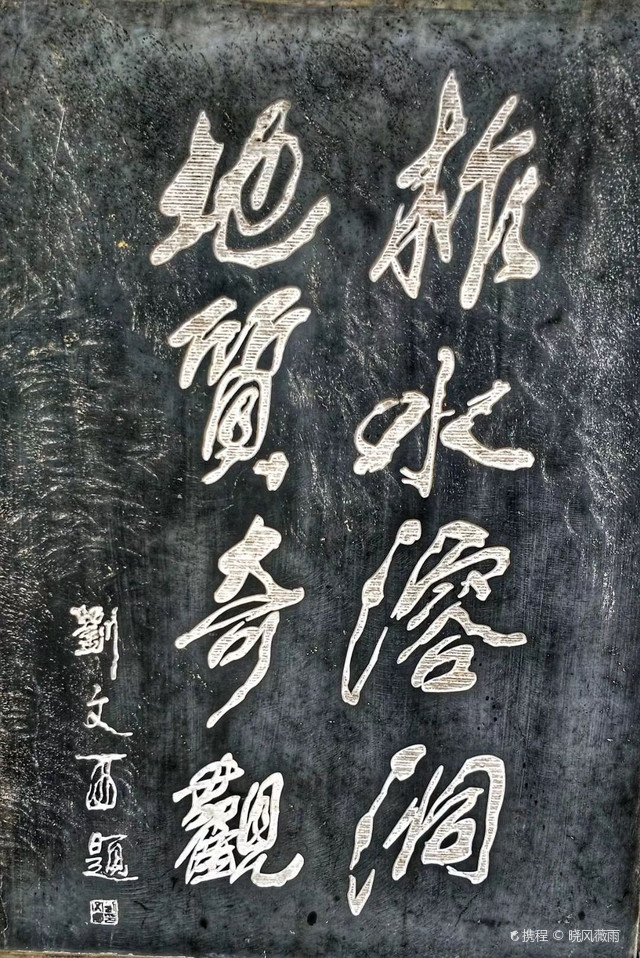 柞水溶洞
地質奇觀
劉文西題
携程 © 晓风薇雨